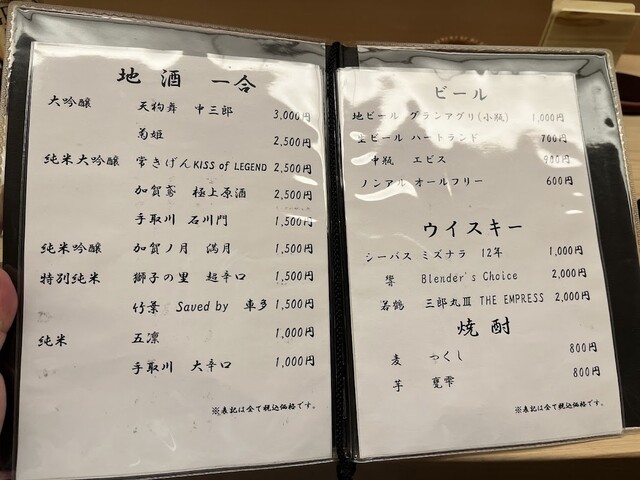 地酒 一合
大吟醸 天狗舞 中三郎 3,000円
菊姫 2,500円
純米大吟醸 常きげんKISS of LEGEND 2,500円
加賀鳶 極上原酒 2,500円
手取川 石川門 1,500円
純米吟醸 加賀ノ月 満月 1,500円
特別純米 獅子の里 超辛口 1,500円
竹葉 Saved by 車多 1,500円
純米 五凛 1,000円
手取川 大辛口 1,000円
※表記は全て税込価格です。
ビール
地ビール グランアグリ(小瓶) 1,000円
生ビール ハートランド 700円
中瓶 エビス 900円
ノンアル オールフリー 600円
ウイスキー
シーバス ミズナラ 12年 1,000円
響 Blender's Choice 2,000円
若鶴 三郎丸Ⅲ THE EMPRESS 2,000円
焼酎
麦 つくし 800円
芋 甕雫 800円
※表記は全て税込価格です。